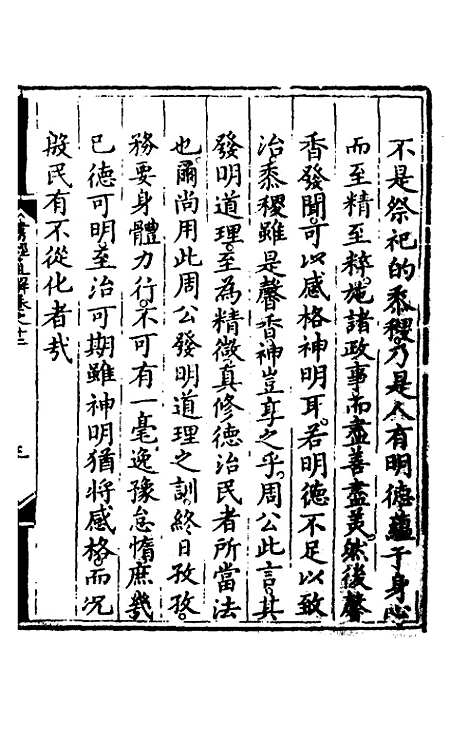 不是祭祀的黍稷乃是人有明德蘊于身心
而至精至粹施諸政事而盡善盡美然後馨
香發聞可以感格神明耳若明德不足以致
治黍稷雖是馨香神豈享之乎周公此言其
發明道理至為精微真修德治民者所當法
也爾尚用此周公發明道理之訓終日孜孜
務要身體力行不可有一毫逸豫怠惰庶幾
已德可明至治可期雖神明猶將感格而況
殷民有不從化者哉
書經直解卷之十二
三